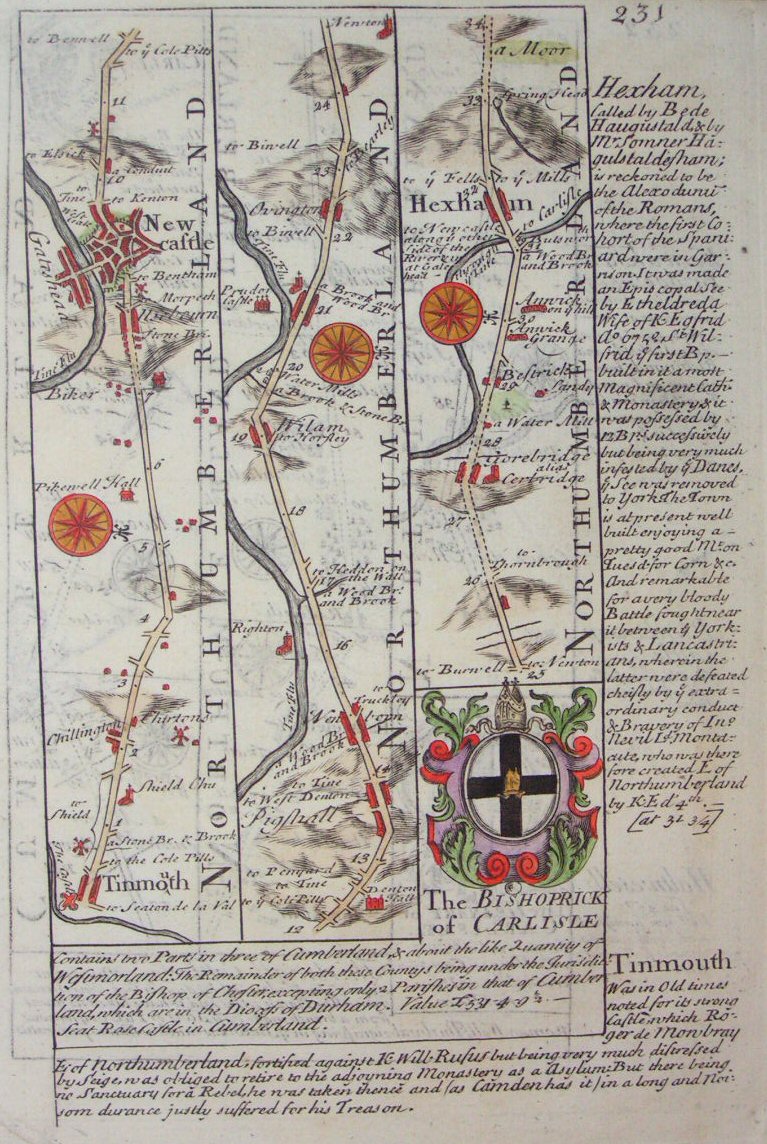 231
to Benwell
to yͤ Cole Pitts
11
to Elsick
a Conduit
10
to Tine
to Kenton
West Gate
New
castle
Gateshead
to Bentham
to Morpeth
Useburn
Stone Br.
Tine Flu
Biker
7
6
Pikewell Hall
5
4
3
Chirtons
Chillington
2
Shield Chu
to Shield
1
a Stone Br. & Brook
to the Cole Pitts
Tine Castle
Tinmouth
to Seaton de la Val
NORTHUMBERLAND
Newton
24
to Biwell
to Bearley
23
Ovington
to Biwell
22
Tine Flu
Prudoe Castle
a Brook and Wood Br.
21
20
Water Mills
a Brook & Stone Br.
Wilam
19
to Horsley
18
to Heddon on the Wall
17
a Wood Br. and Brook
Righton
16
Tine Flu
to Truckley
Newborn
a Wood Br. and Brook
14
to Tine
to West Denton
Pigshall
13
to Penyard
to Tine
to yͤ Cole Pitts
Denton Hall
12
NORTHUMBERLAND
34
a Moor
33
Spring Head
to yͤ Fells
to yͤ Mills
32
Hexham
to Carlisle
to Newcastle along yͤ other side of the River in yͤ at Gateshead
a Wood Br. and Brook
Anwick on yͤ hill
30
Anwick Grange
Besirick
29
Sandy
a Water Mill
28
Corebridge
alias
Corbridge
27
to Thornbrough
26
to Burwell
to Newton
25
NORTHUMBERLAND
Hexham,
Called by Bede
Haugustald, & by
Mͬ Somner Ha-
gulstaldesham;
is reckoned to be
the Alexodunum
of the Romans,
where the first Co-
hort of the Spani-
ard were in Gar-
rison It was made
an Episcopal See
by Etheldreda
Wife of K. Egfrid
Aº 675, & Sͭ Wil-
frid yͤ first Bp.
built in it a most
Magnificent Cath:
& Monastery & it
was possessed by
12 Bpͬˢ successively
but being very much
infested by yͤ Danes,
yͤ See was removed
to York. The Town
is at present well
built enjoying a
pretty good Mͭ on
Tuesd. for Corn &c.
And remarkable
for a very bloody
Battle fought near
it between yͤ York-
ists & Lancastri-
ans, wherein the
latter were defeated
cheifly by yͤ extra-
ordinary conduct
& Bravery of Inº
Nevil Lͩ Monta-
cute, who was there
fore created E of
Northumberland
by K. Edͩ 4ͭͪ.
The BISHOPRICK
of CARLISLE
Contains two Parts in three of Cumberland, & about the like Quantity of
Westmorland: The Remainder of both these Countys being under the Jurisdic-
tion of the Bishop of Chester, excepting only 2 Parishes in that of Cumber-
land, which are in the Diocess of Durham. Value £531-4-9½.
Seat Rose Castle in Cumberland.
Tinmouth
Was in Old times
noted for its strong
Castle, which Ro-
ger de Mowbray
E. of Northumberland, fortified against K. Will. Rufus but being very much distressed
by Seige, was obliged to retire to the adjoyning Monastery as a Asylum: But there being
no Sanctuary for a Rebel, he was taken thence and (as Camden has it) in a long and Noi-
som durance justly suffered for his Treason.